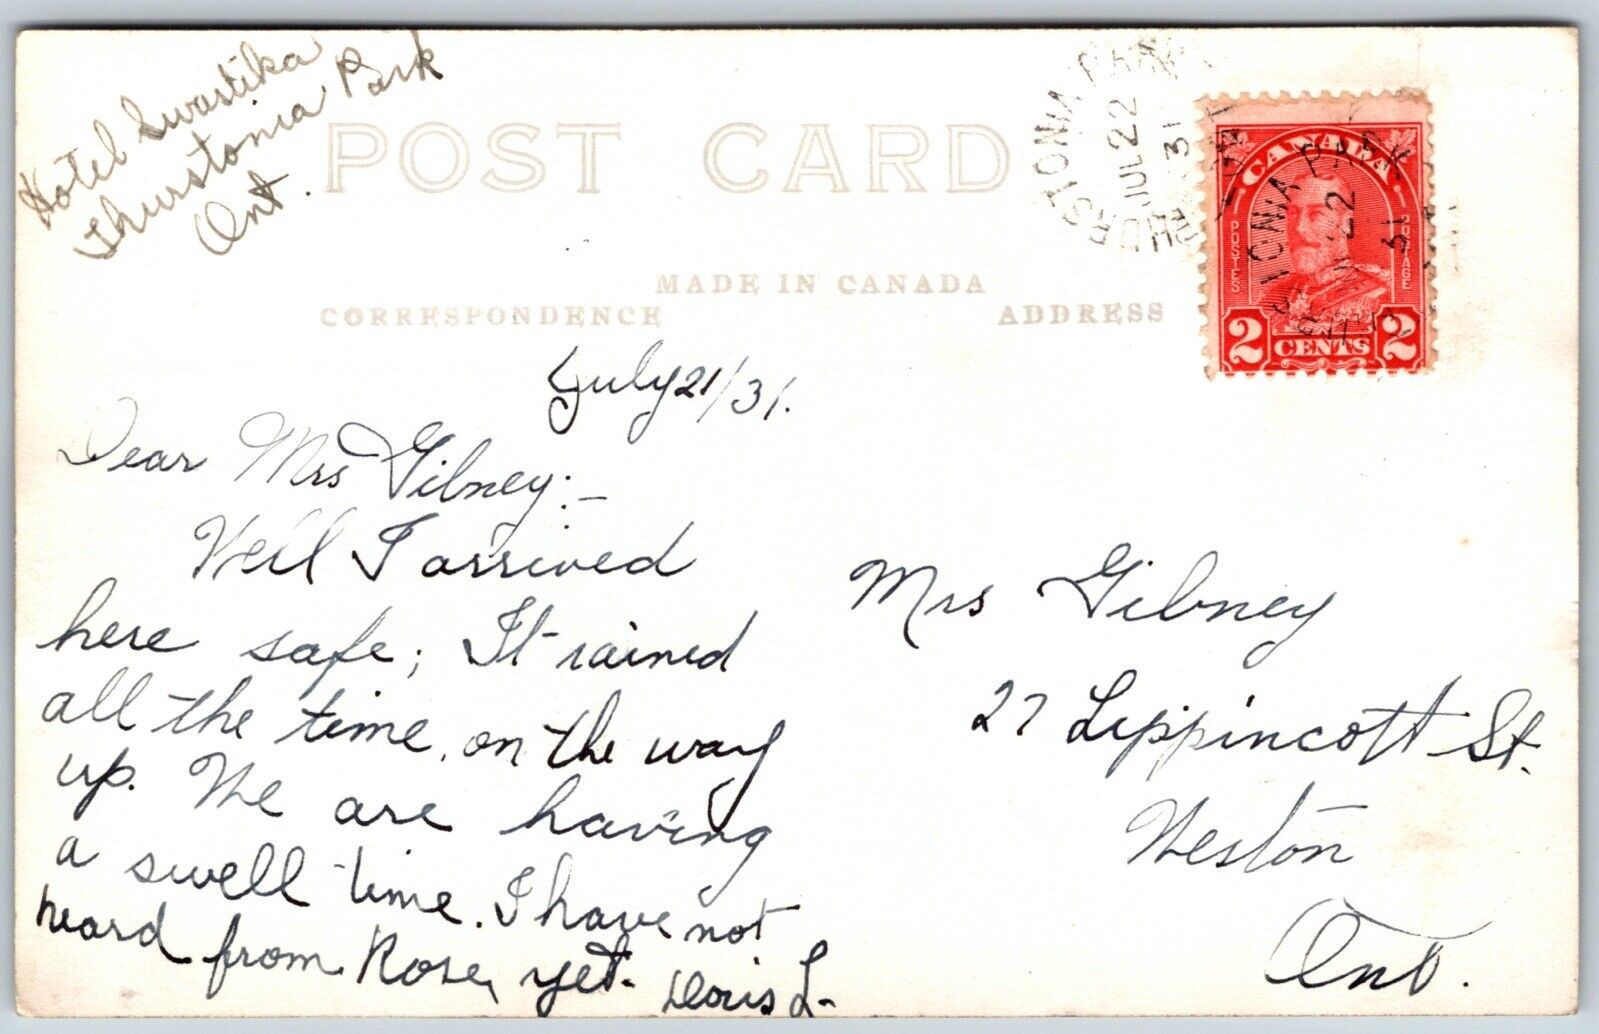 Hotel Swastika
Thurstonia Park
Ont.
POST CARD
MADE IN CANADA
CORRESPONDENCE
ADDRESS
THURSTONIA PARK
JUL 22
31
ONT
CANADA
POSTES
POSTAGE
2 CENTS 2
July 21/31.
Dear Mrs Gibney:-
Well I arrived
here safe; It rained
all the time, on the way
up. We are having
a swell time. I have not
heard from Rose, yet. Doris L-
Mrs Gibney
27 Lippincott St.
Weston
Ont.